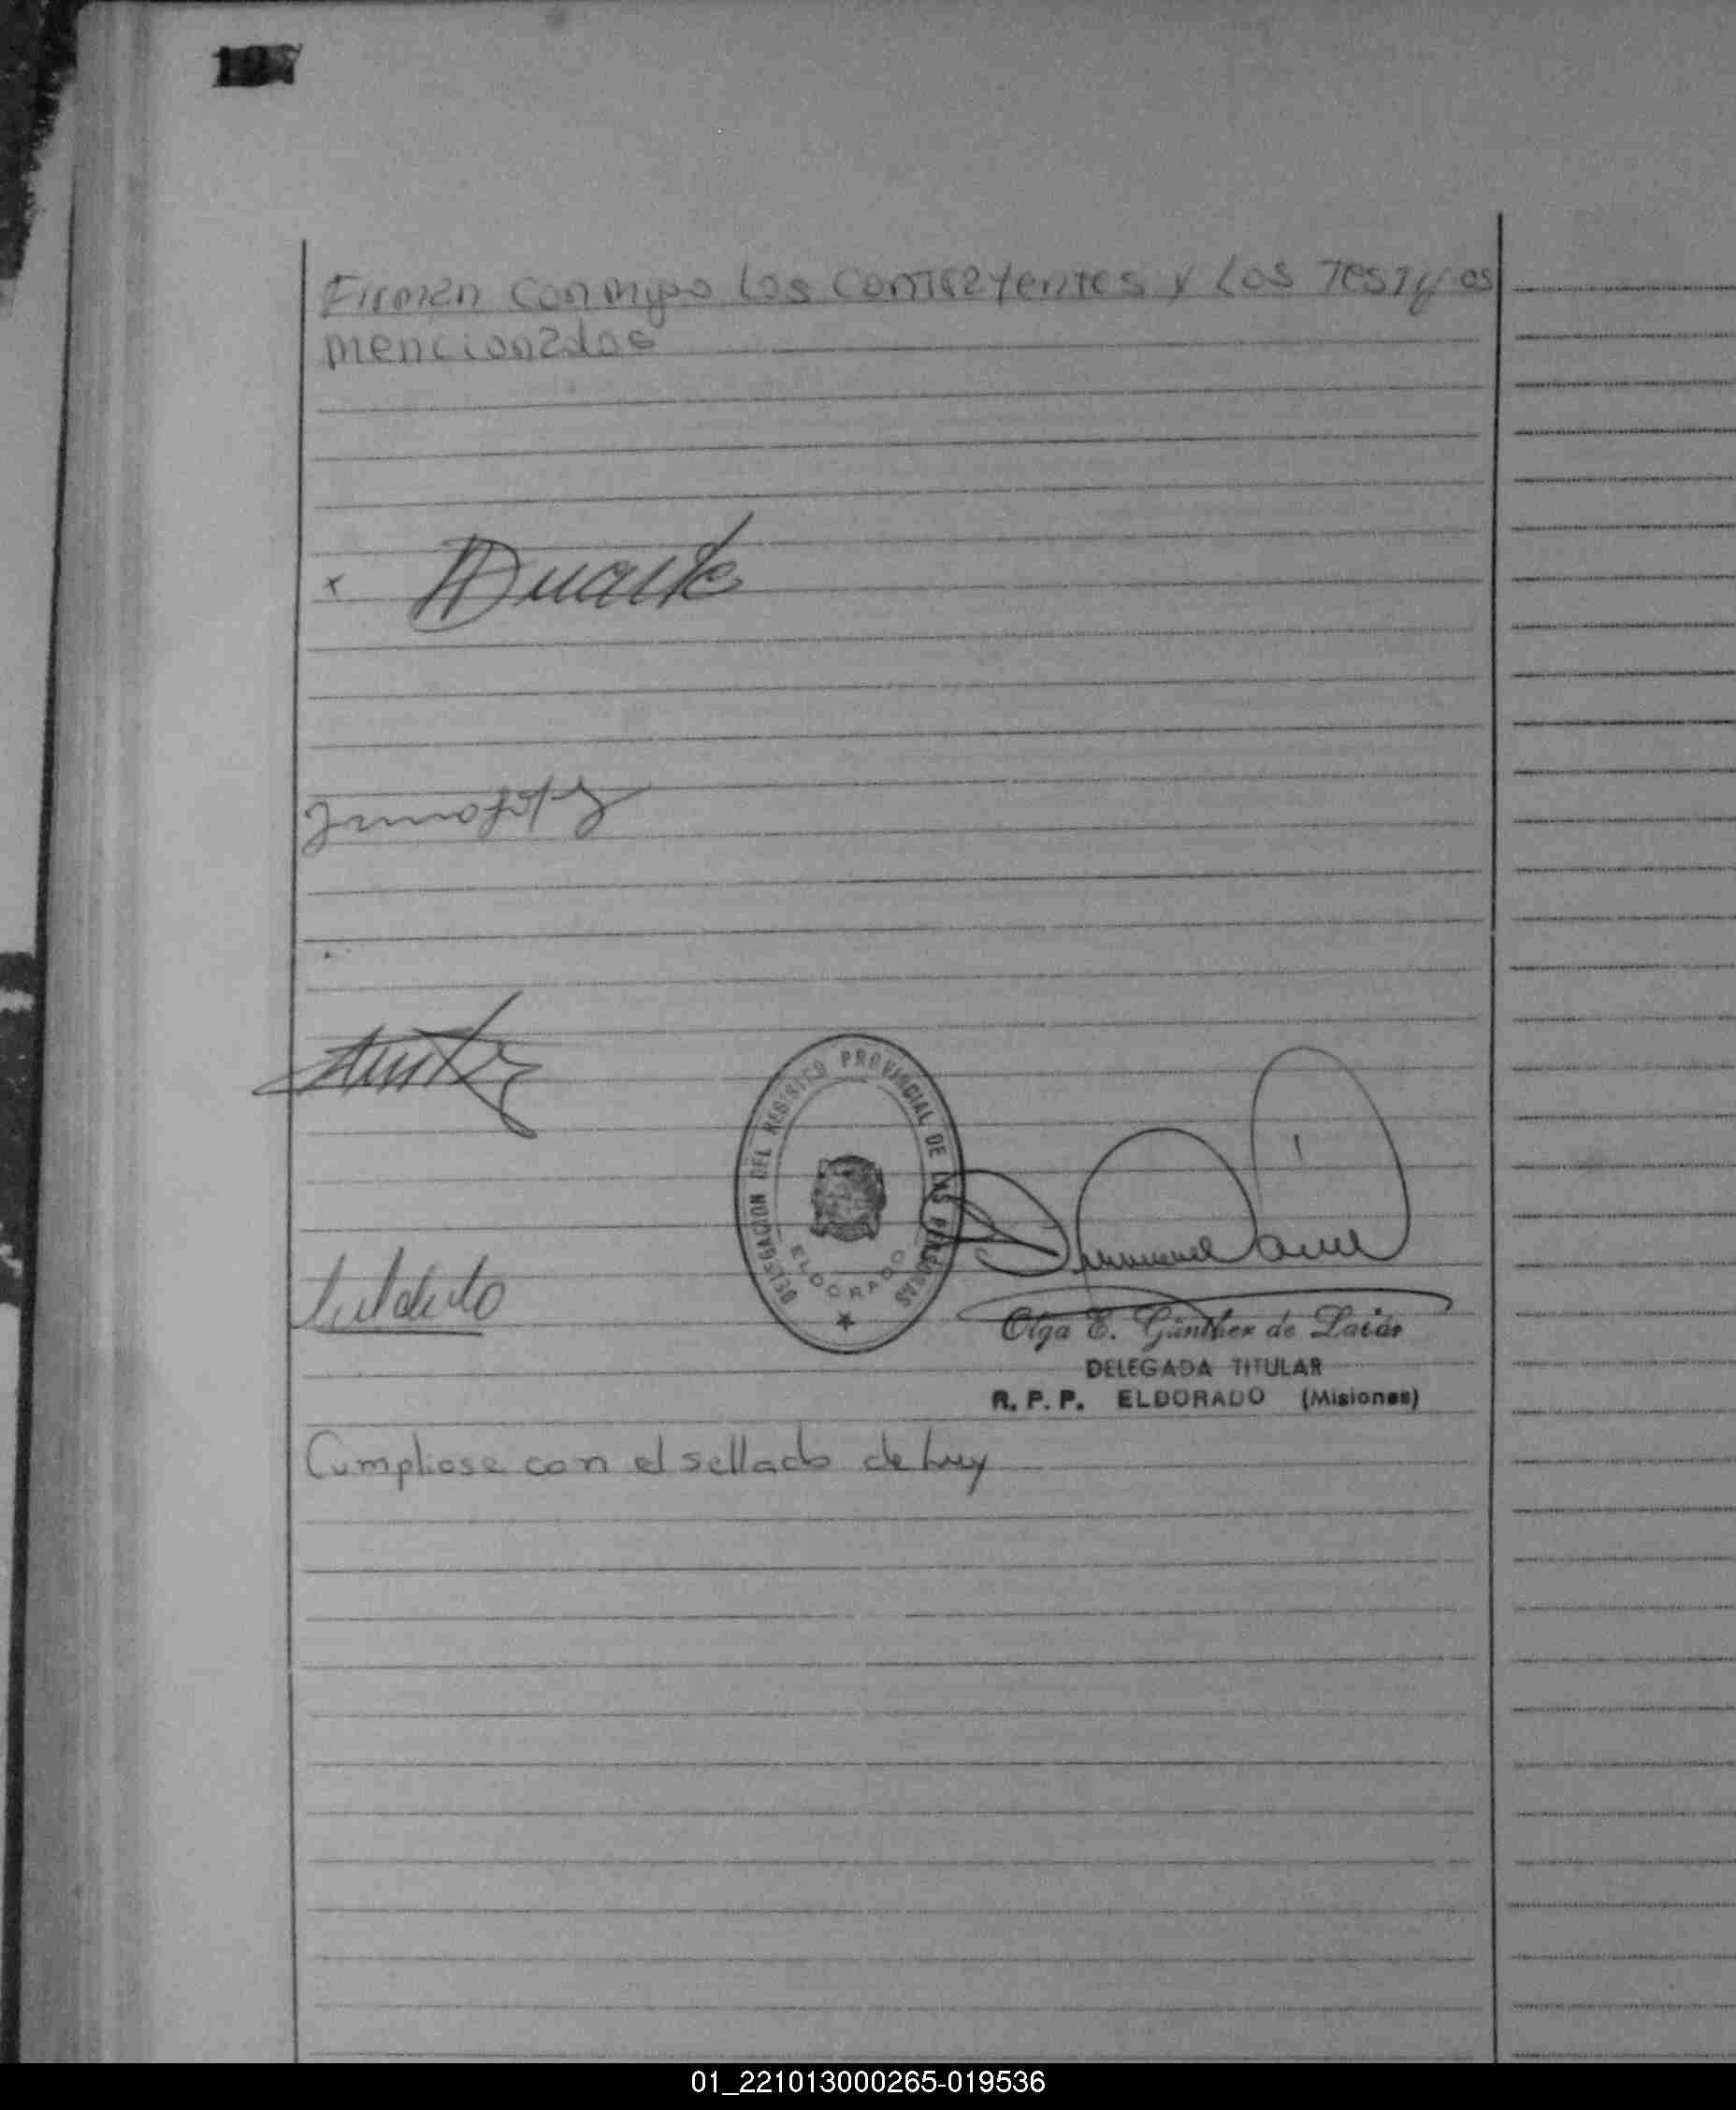 127
Firman conmigo los contrayentes y los Testigos
mencionados
x Duarte
DELEGACION DEL REGISTRO PROVINCIAL DE LAS PERSONAS
ELDORADO
Olga E. Günther de Laiár
DELEGADA TITULAR
R. P. P. ELDORADO (Misiones)
Cumpliose con el sellado de Ley
01_221013000265-019536